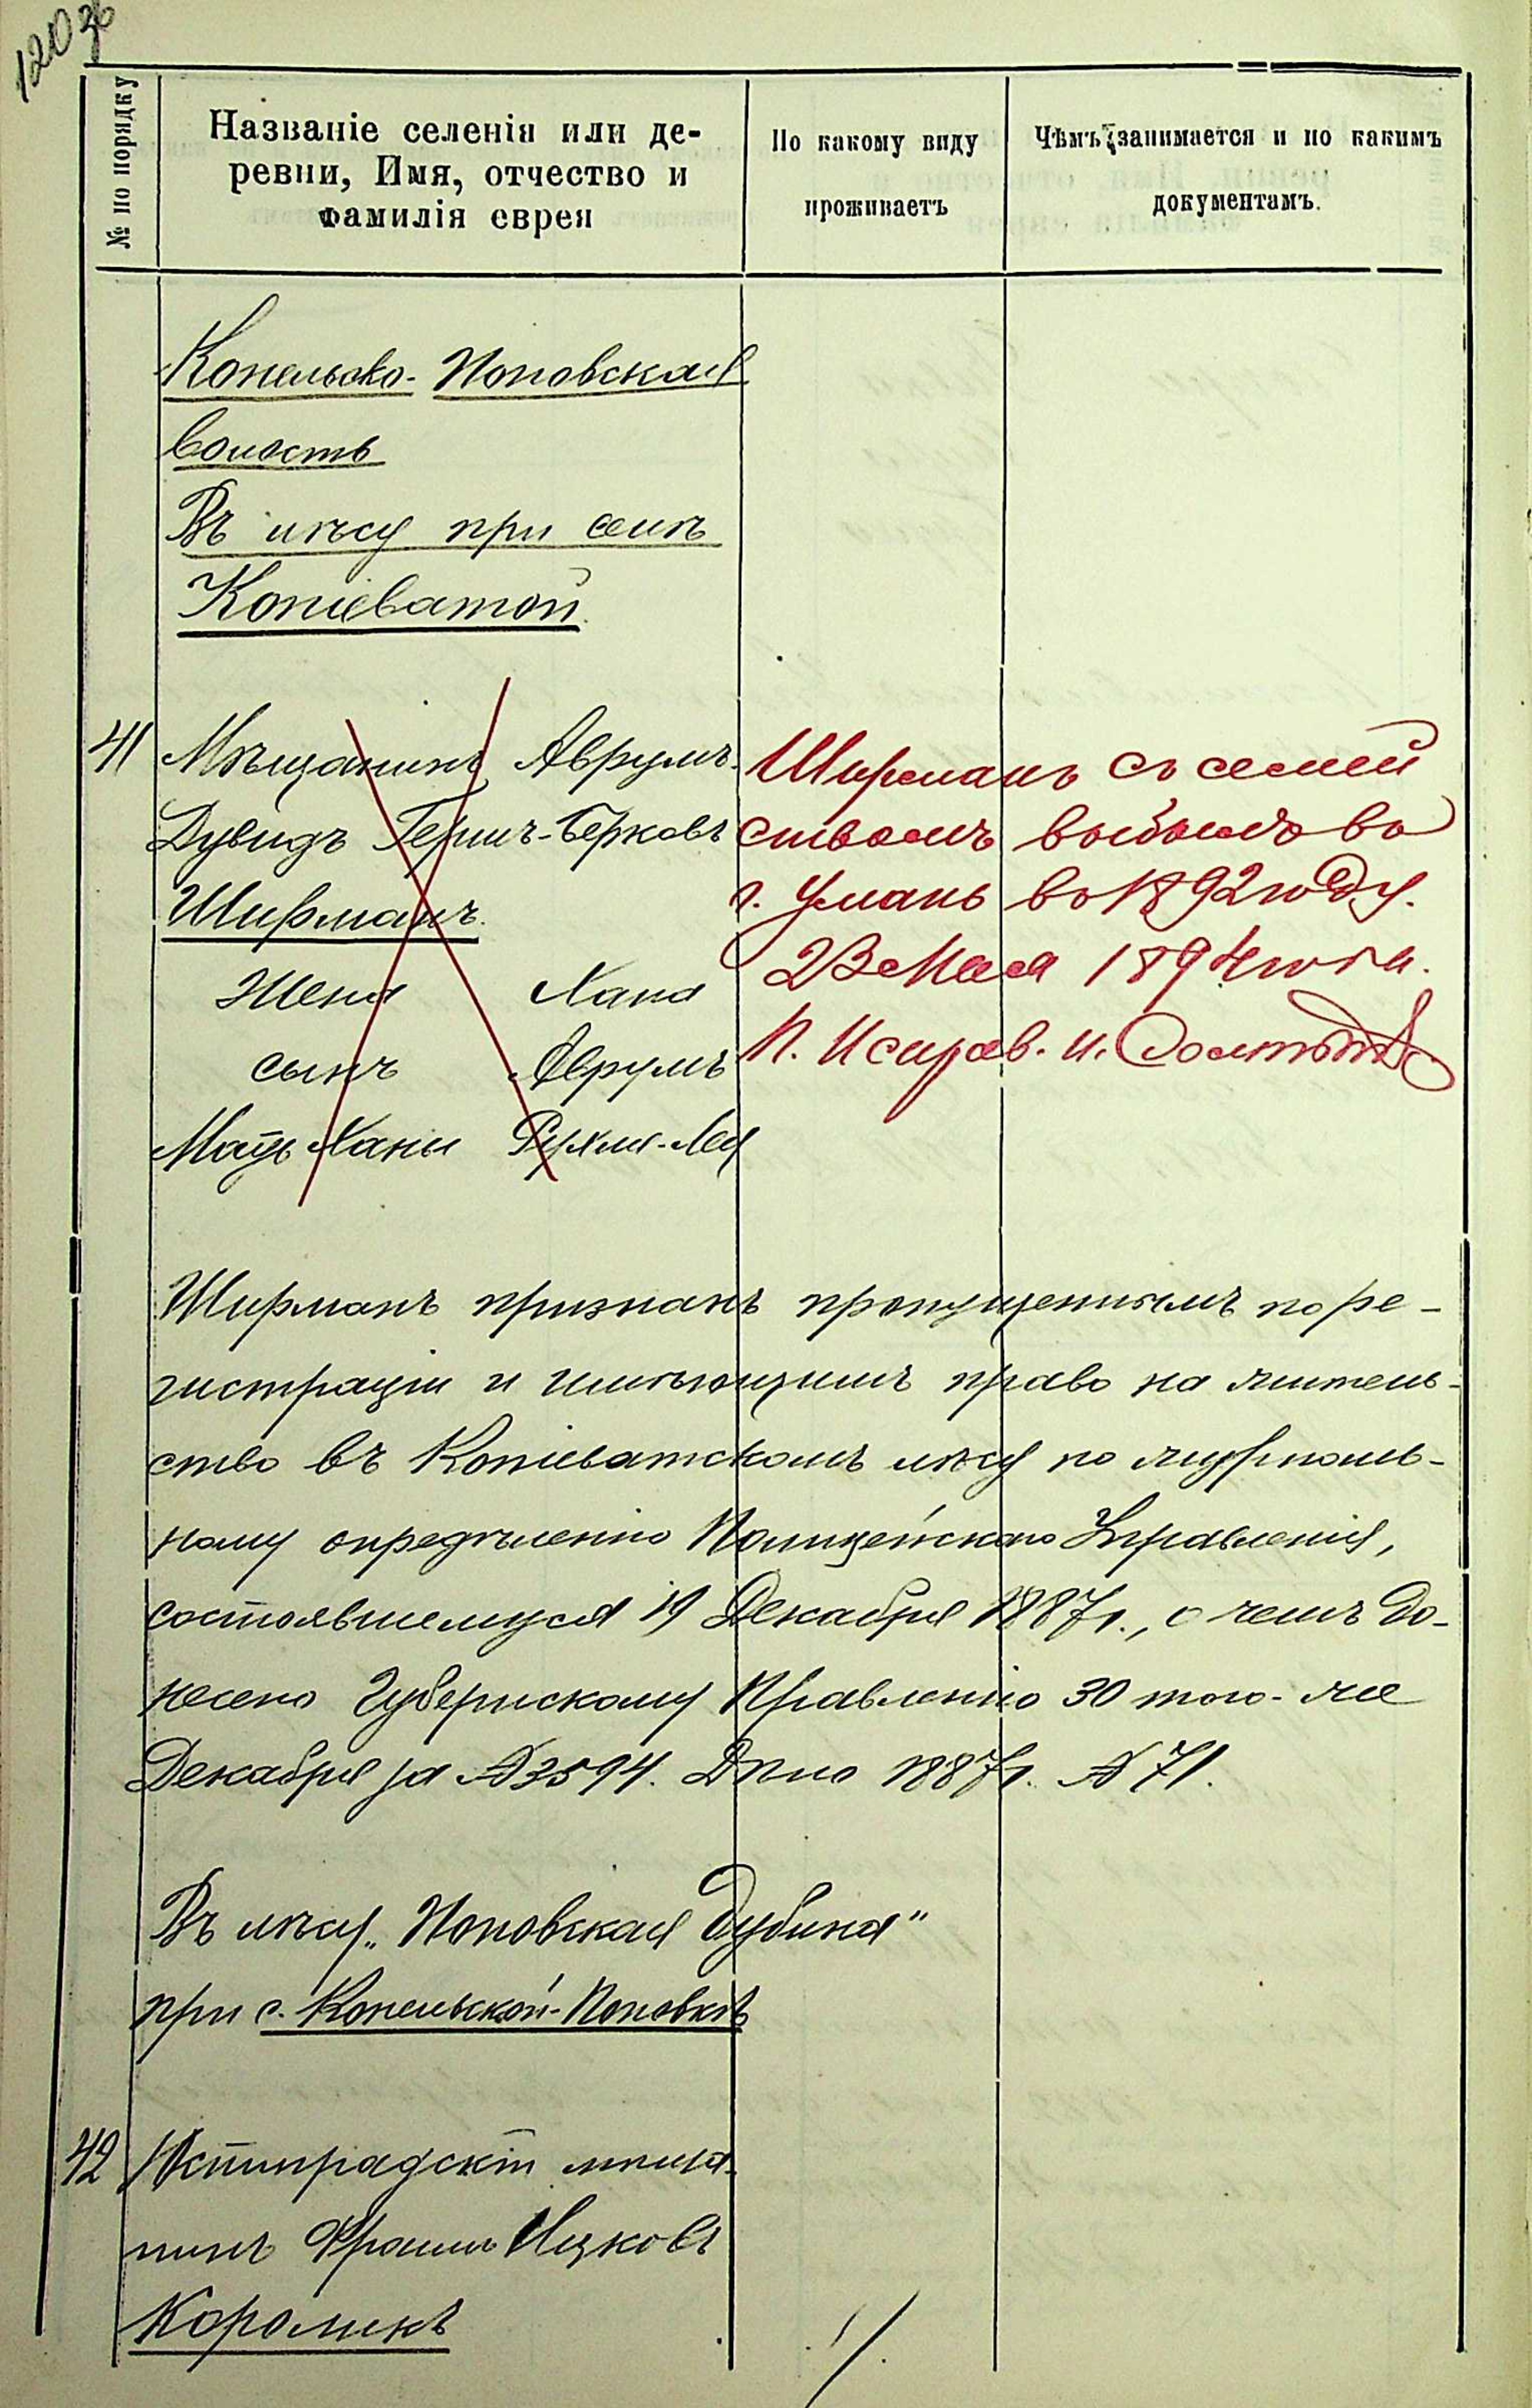 120 об
№ по порядку
Названіе селенія или де-
ревни, Имя, отчество и
фамилія еврея
По какому виду
проживаетъ
Чѣмъ занимается и по какимъ
документамъ.
Конельско-Поповская
волость
Въ лѣсу при селѣ
Копіеватой.
41 Мѣщанинъ Аврумъ-
Дувидъ Гершъ-Берковъ
Ширманъ.
Жена Хана
сынъ Аврумъ
Мать Ханы Рухля-Лея
Ширманъ съ семей
ствомъ выбылъ во
г. Умань во 1892 году.
23 Мая 1894 года.
П. Исправ. И.
Ширманъ признанъ пропущеннымъ по ре-
гистраціи и имѣющимъ право на житель-
ство въ Копіеватскомъ лѣсу по журналь-
ному опредѣленію Полицейскаго Управленія,
состоявшемуся 19 Декабря 1887 г., о чемъ до-
несено Губернскому Правленію 30 того-же
Декабря за № 3594. Дѣло 1887 г. № 71.
Въ лѣсу „Поповская Дубина"
при с. Конельской-Поповкѣ
42 Юстинградскій мѣща-
нинъ Фроимъ Ицковъ
Короликъ